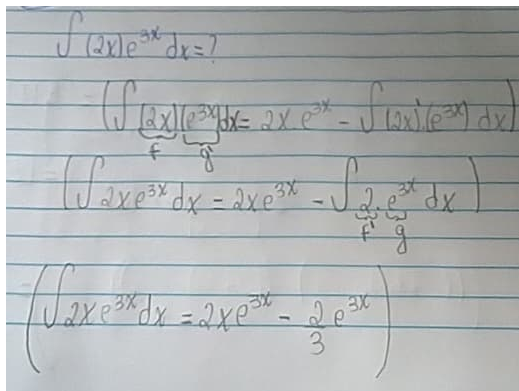 ∫ (2x) e^{3x} dx = ?
(∫ (2x) (e^{3x}) dx = 2x . e^{3x} - ∫ (2x)' . (e^{3x}) dx)
f g'
(∫ 2x e^{3x} dx = 2x e^{3x} - ∫ 2 . e^{3x} dx)
f' g
(∫ 2x e^{3x} dx = 2x e^{3x} - 2/3 e^{3x})